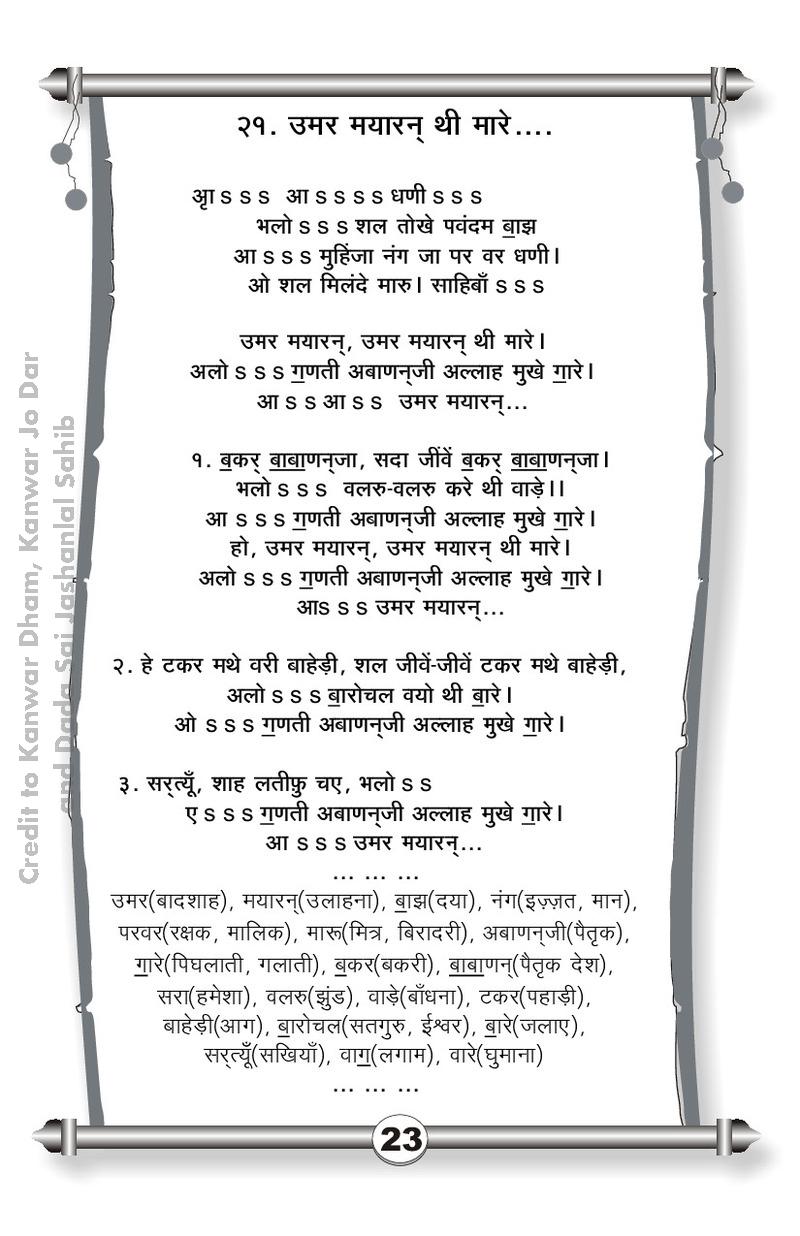 २१. उमर मयारन् थी मारे....
आृ s s s आ s s s s धणी s s s
भलो s s s शल तोखे पवंदम बा॒झ
आ s s s मुहिंजा नंग जा पर वर धणी।
ओ शल मिलंदे मारु। साहिबाँ s s s
उमर मयारन्, उमर मयारन् थी मारे।
अलो s s s ग॒णती अबाणन्जी अल्लाह मुखे गा॒रे।
आ s s आ s s उमर मयारन्...
१. ब॒कर् बा॒बा॒णन्जा, सदा जींवें ब॒कर् बा॒बा॒णन्जा।
भलो s s s वलरु-वलरु करे थी वाड़े।।
आ s s s ग॒णती अबाणन्जी अल्लाह मुखे गा॒रे।
हो, उमर मयारन्, उमर मयारन् थी मारे।
अलो s s s ग॒णती अबाणन्जी अल्लाह मुखे गा॒रे।
आs s s उमर मयारन्...
२. हे टकर मथे वरी बाहेड़ी, शल जीवें-जीवें टकर मथे बाहेड़ी,
अलो s s s बा॒रोचल वयो थी बा॒रे।
ओ s s s ग॒णती अबाणन्जी अल्लाह मुखे गा॒रे।
३. सर्त्यूँ, शाह लतीफ़ु चए, भलो s s
ए s s s ग॒णती अबाणन्जी अल्लाह मुखे गा॒रे।
आ s s s उमर मयारन्...
... ... ...
उमर(बादशाह), मयारन्(उलाहना), बा॒झ(दया), नंग(इज़्ज़त, मान),
परवर(रक्षक, मालिक), मारू(मित्र, बिरादरी), अबाणन्जी(पैतृक),
गा॒रे(पिघलाती, गलाती), ब॒कर(बकरी), बा॒बा॒णन्(पैतृक देश),
सरा(हमेशा), वलरु(झुंड), वाड़े(बाँधना), टकर(पहाड़ी),
बाहेड़ी(आग), बा॒रोचल(सतगुरु, ईश्वर), बा॒रे(जलाए),
सर्त्यूँ(सखियाँ), वाग॒(लगाम), वारे(घुमाना)
... ... ...
23
Credit to Kanwar Dham, Kanwar Jo Dar
and Dada Sai Jashanlal Sahib